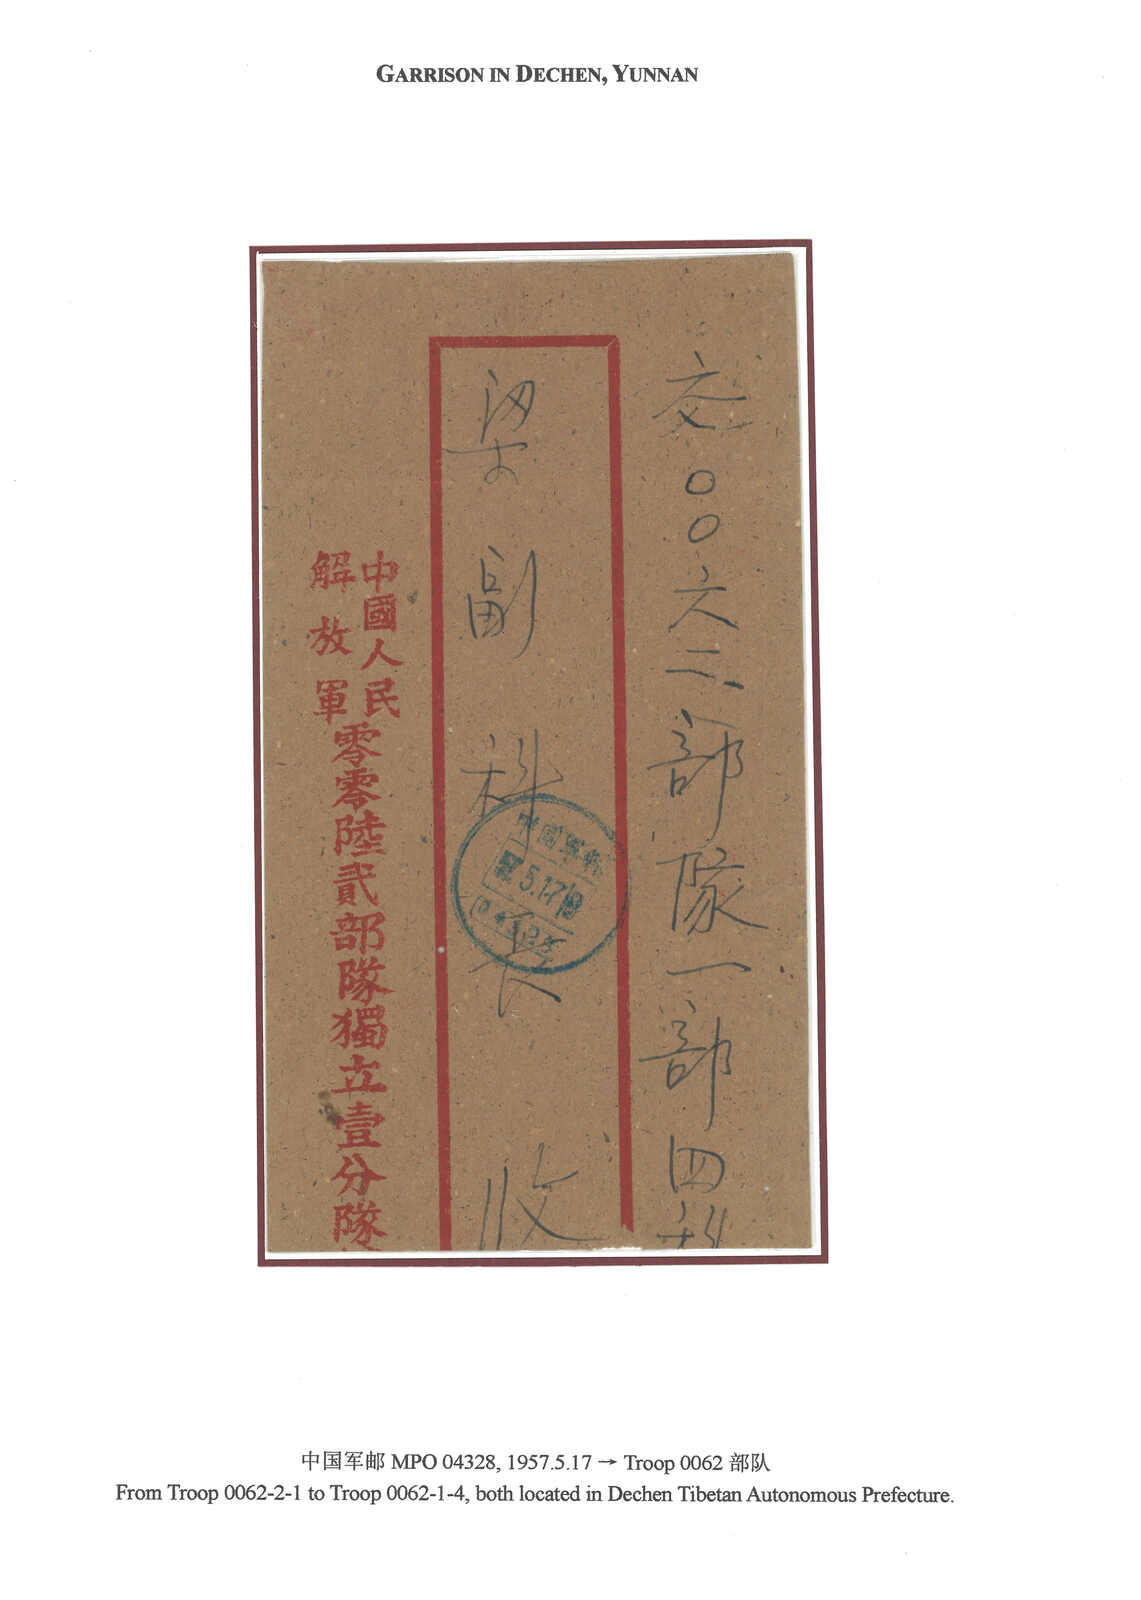 GARRISON IN DECHEN, YUNNAN
交〇〇六二部隊一部四科
梁副科长 收
中國人民
解放軍
零零陸貳部隊獨立壹分隊
5.17
中国军邮 MPO 04328, 1957.5.17 → Troop 0062 部队
From Troop 0062-2-1 to Troop 0062-1-4, both located in Dechen Tibetan Autonomous Prefecture.